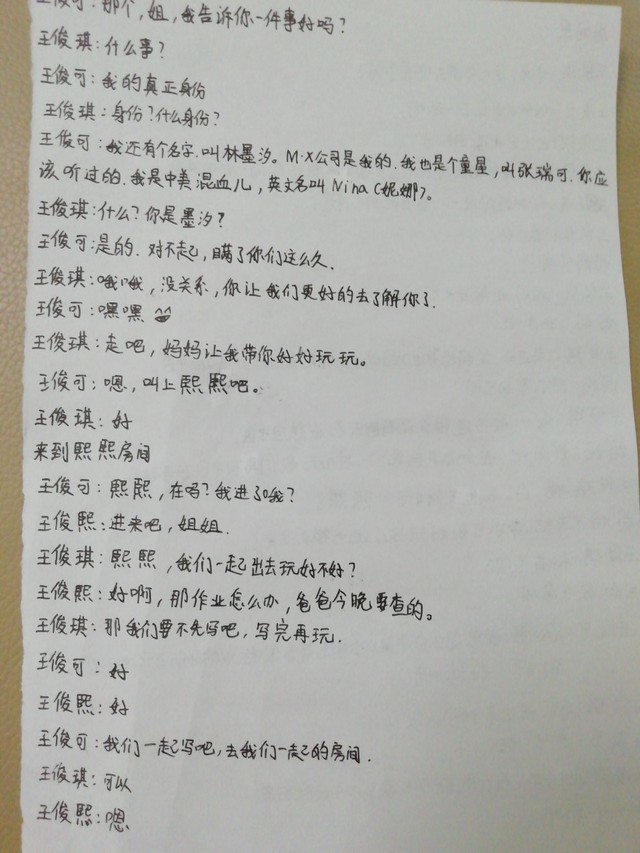 王俊可：那个，姐，我告诉你一件事好吗？
王俊琪：什么事？
王俊可：我的真正身份
王俊琪：身份？什么身份？
王俊可：我还有个名字.叫林墨汐。M·X公司是我的.我也是个童星，叫张瑞可.你应
该听过的.我是中美混血儿，英文名叫Nina（妮娜）。
王俊琪：什么？你是墨汐？
王俊可：是的.对不起，瞒了你们这么久.
王俊琪：哦哦，没关系，你让我们更好的去了解你了.
王俊可：嘿嘿
王俊琪：走吧，妈妈让我带你好好玩玩。
王俊可：嗯，叫上熙熙吧。
王俊琪：好
来到熙熙房间
王俊可：熙熙，在吗？我进了哦？
王俊熙：进来吧，姐姐.
王俊琪：熙熙，我们一起出去玩好不好？
王俊熙：好啊，那作业怎么办，爸爸今晚要查的。
王俊琪：那我们要不先写吧，写完再玩.
王俊可：好
王俊熙：好
王俊可：我们一起写吧，去我们一起的房间.
王俊琪：可以
王俊熙：嗯